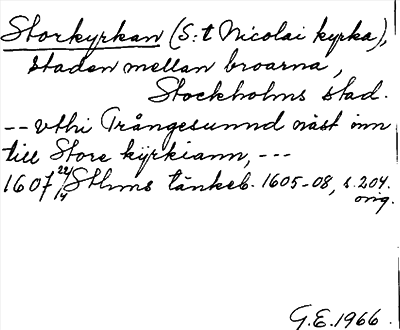 Storkyrkan (S:t Nicolai kyrka),
staden mellan broarna,
Stockholms stad.
-- vthi Trångesunnd näst inn
till Store kyrkiann, ---
1607 22/4 Sthms tänkeb. 1605-08, s. 204.
orig.
G.E. 1966.